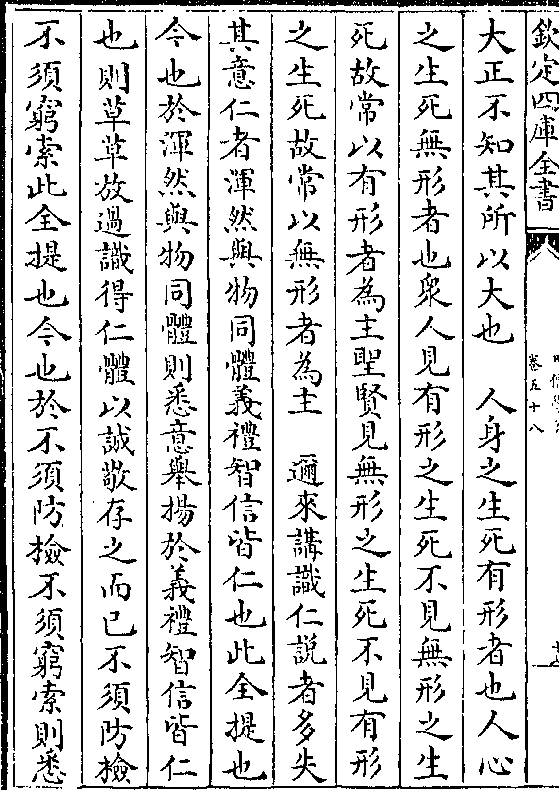 欽定四庫全書
卷五十八
大正不知其所以大也　人身之生死有形者也人心
之生死無形者也衆人見有形之生死不見無形之生
死故常以有形者為主聖賢見無形之生死不見有形
之生死故常以無形者為主　邇來講識仁説者多失
其意仁者渾然與物同體義禮智信皆仁也此全提也
今也於渾然與物同體則悉意舉揚於義禮智信皆仁
也則草草放過識得仁體以誠敬存之而已不須防檢
不須窮索此全提也今也於不須防檢不須窮索則悉